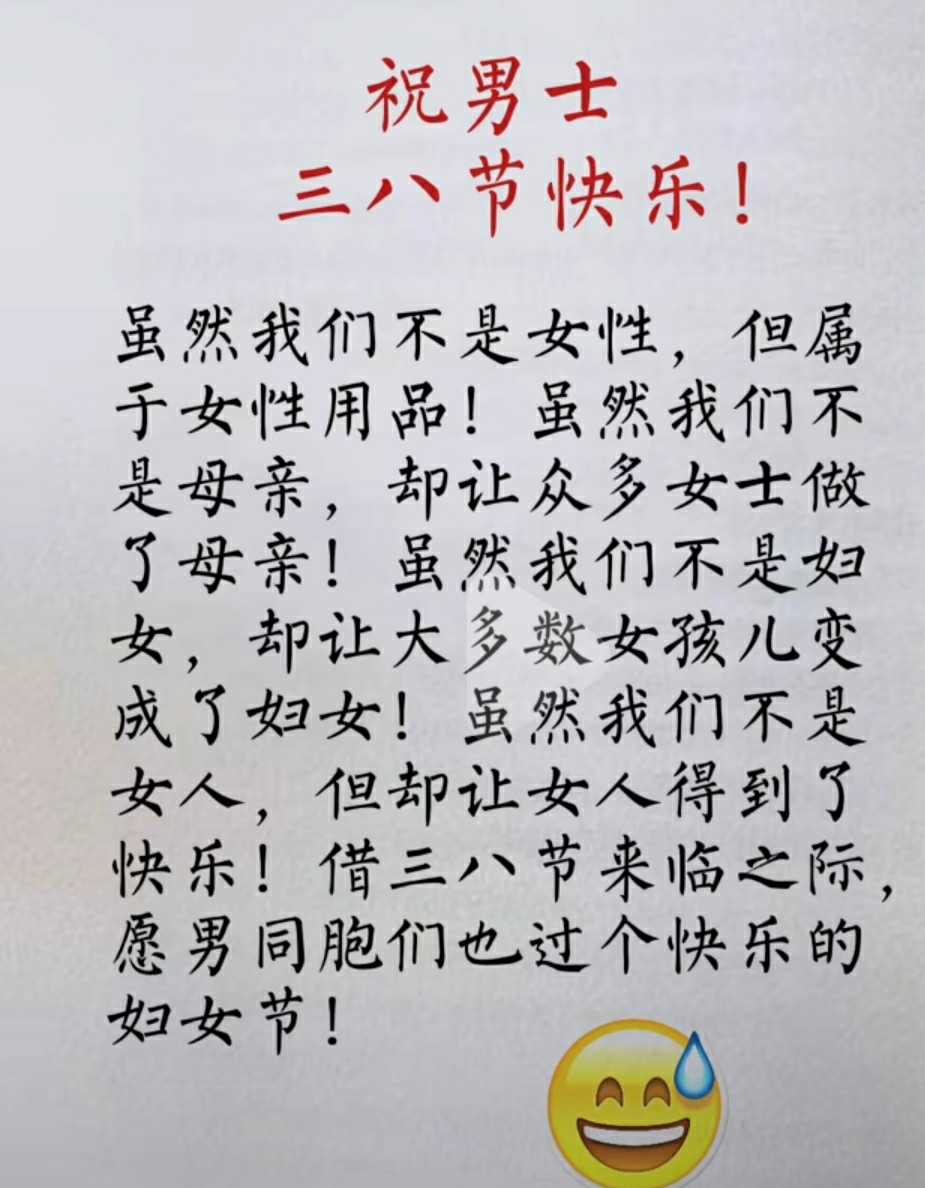 祝男士
三八节快乐！
虽然我们不是女性，但属
于女性用品！虽然我们不
是母亲，却让众多女士做
了母亲！虽然我们不是妇
女，却让大多数女孩儿变
成了妇女！虽然我们不是
女人，但却让女人得到了
快乐！借三八节来临之际，
愿男同胞们也过个快乐的
妇女节！